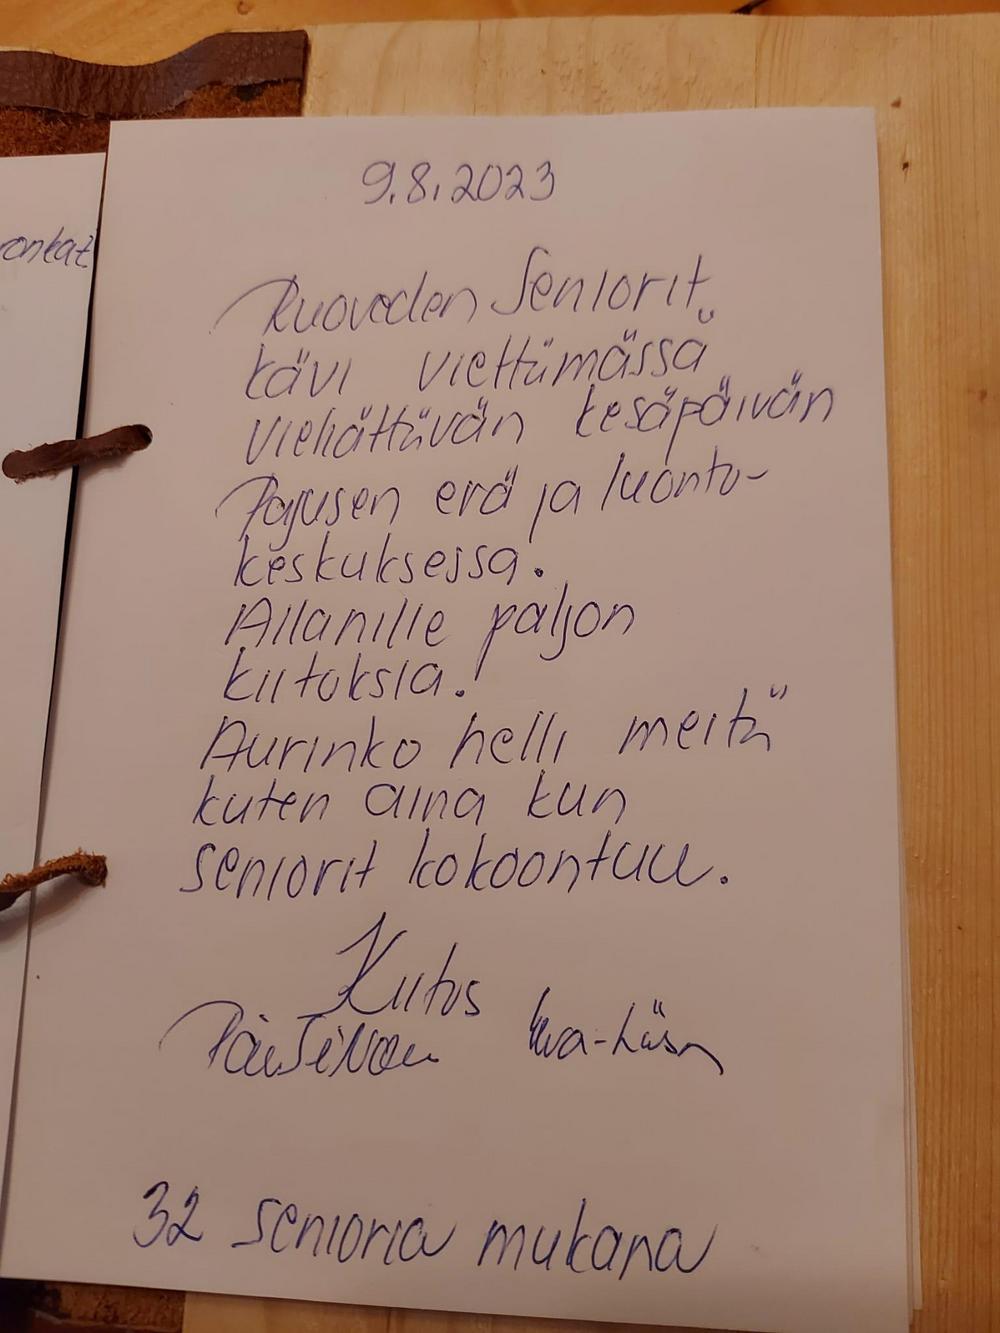 9.8.2023
Ruoveden Seniorit
kävi viettämässä
viehättävän kesäpäivän
Pajusen erä ja luonto-
keskuksessa.
Allanille paljon
kiitoksia!
Aurinko helli meitä
kuten aina kun
seniorit kokoontuu.
Kiitos
32 senioria mukana